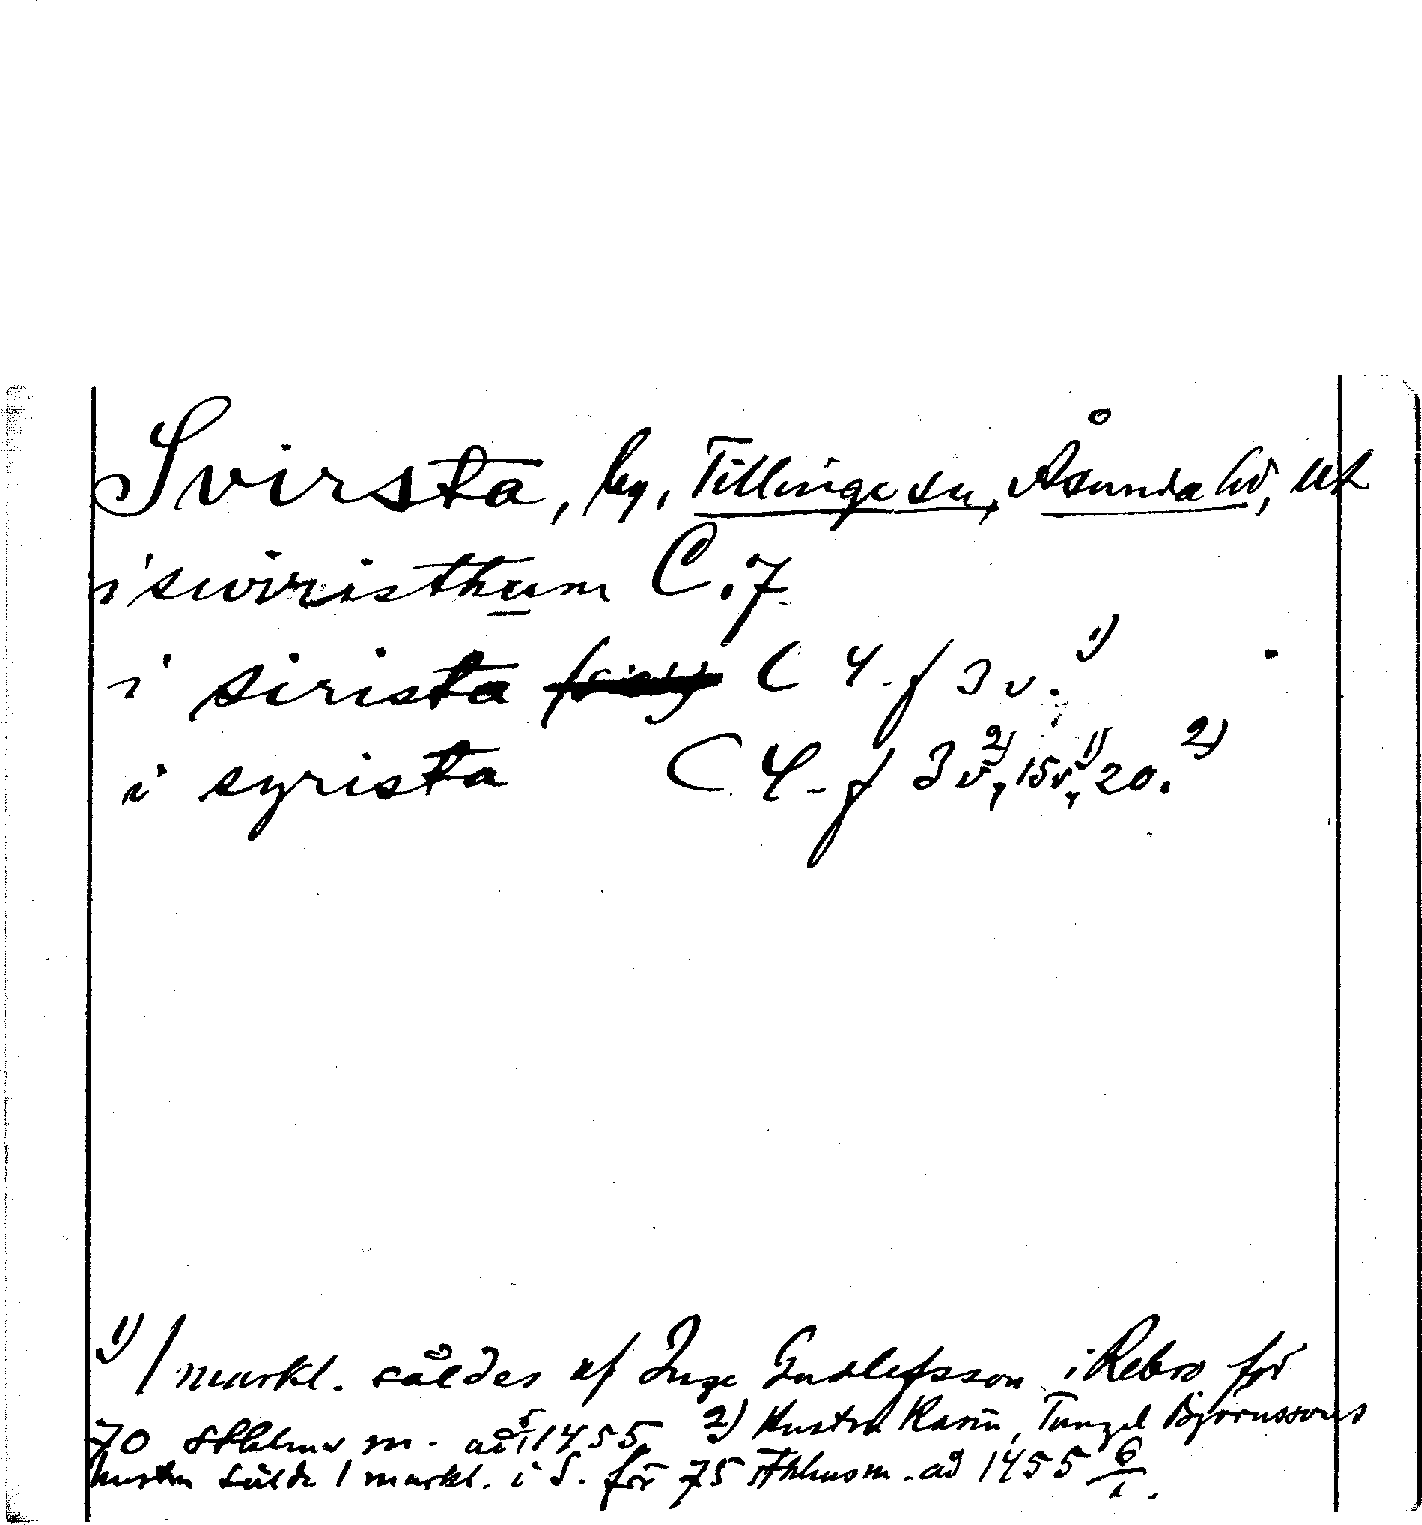 Svirsta, by, Tillinge sn, Åsunda hd, Upl
i swiristhum C.7.
i sirista C 4. f 3 v. 1)
i syrista C 4. f 3 v, 2) 15 v, 1) 20. 2)
1) 1 markl. såldes af Inge Gudlefsson i Rebro för
70 Sthlms m. år 1455 2) Hustru Karin, Tungel Björnssons
hustru sålde 1 markl. i S. för 75 Sthlms m. år 1455 6/1.